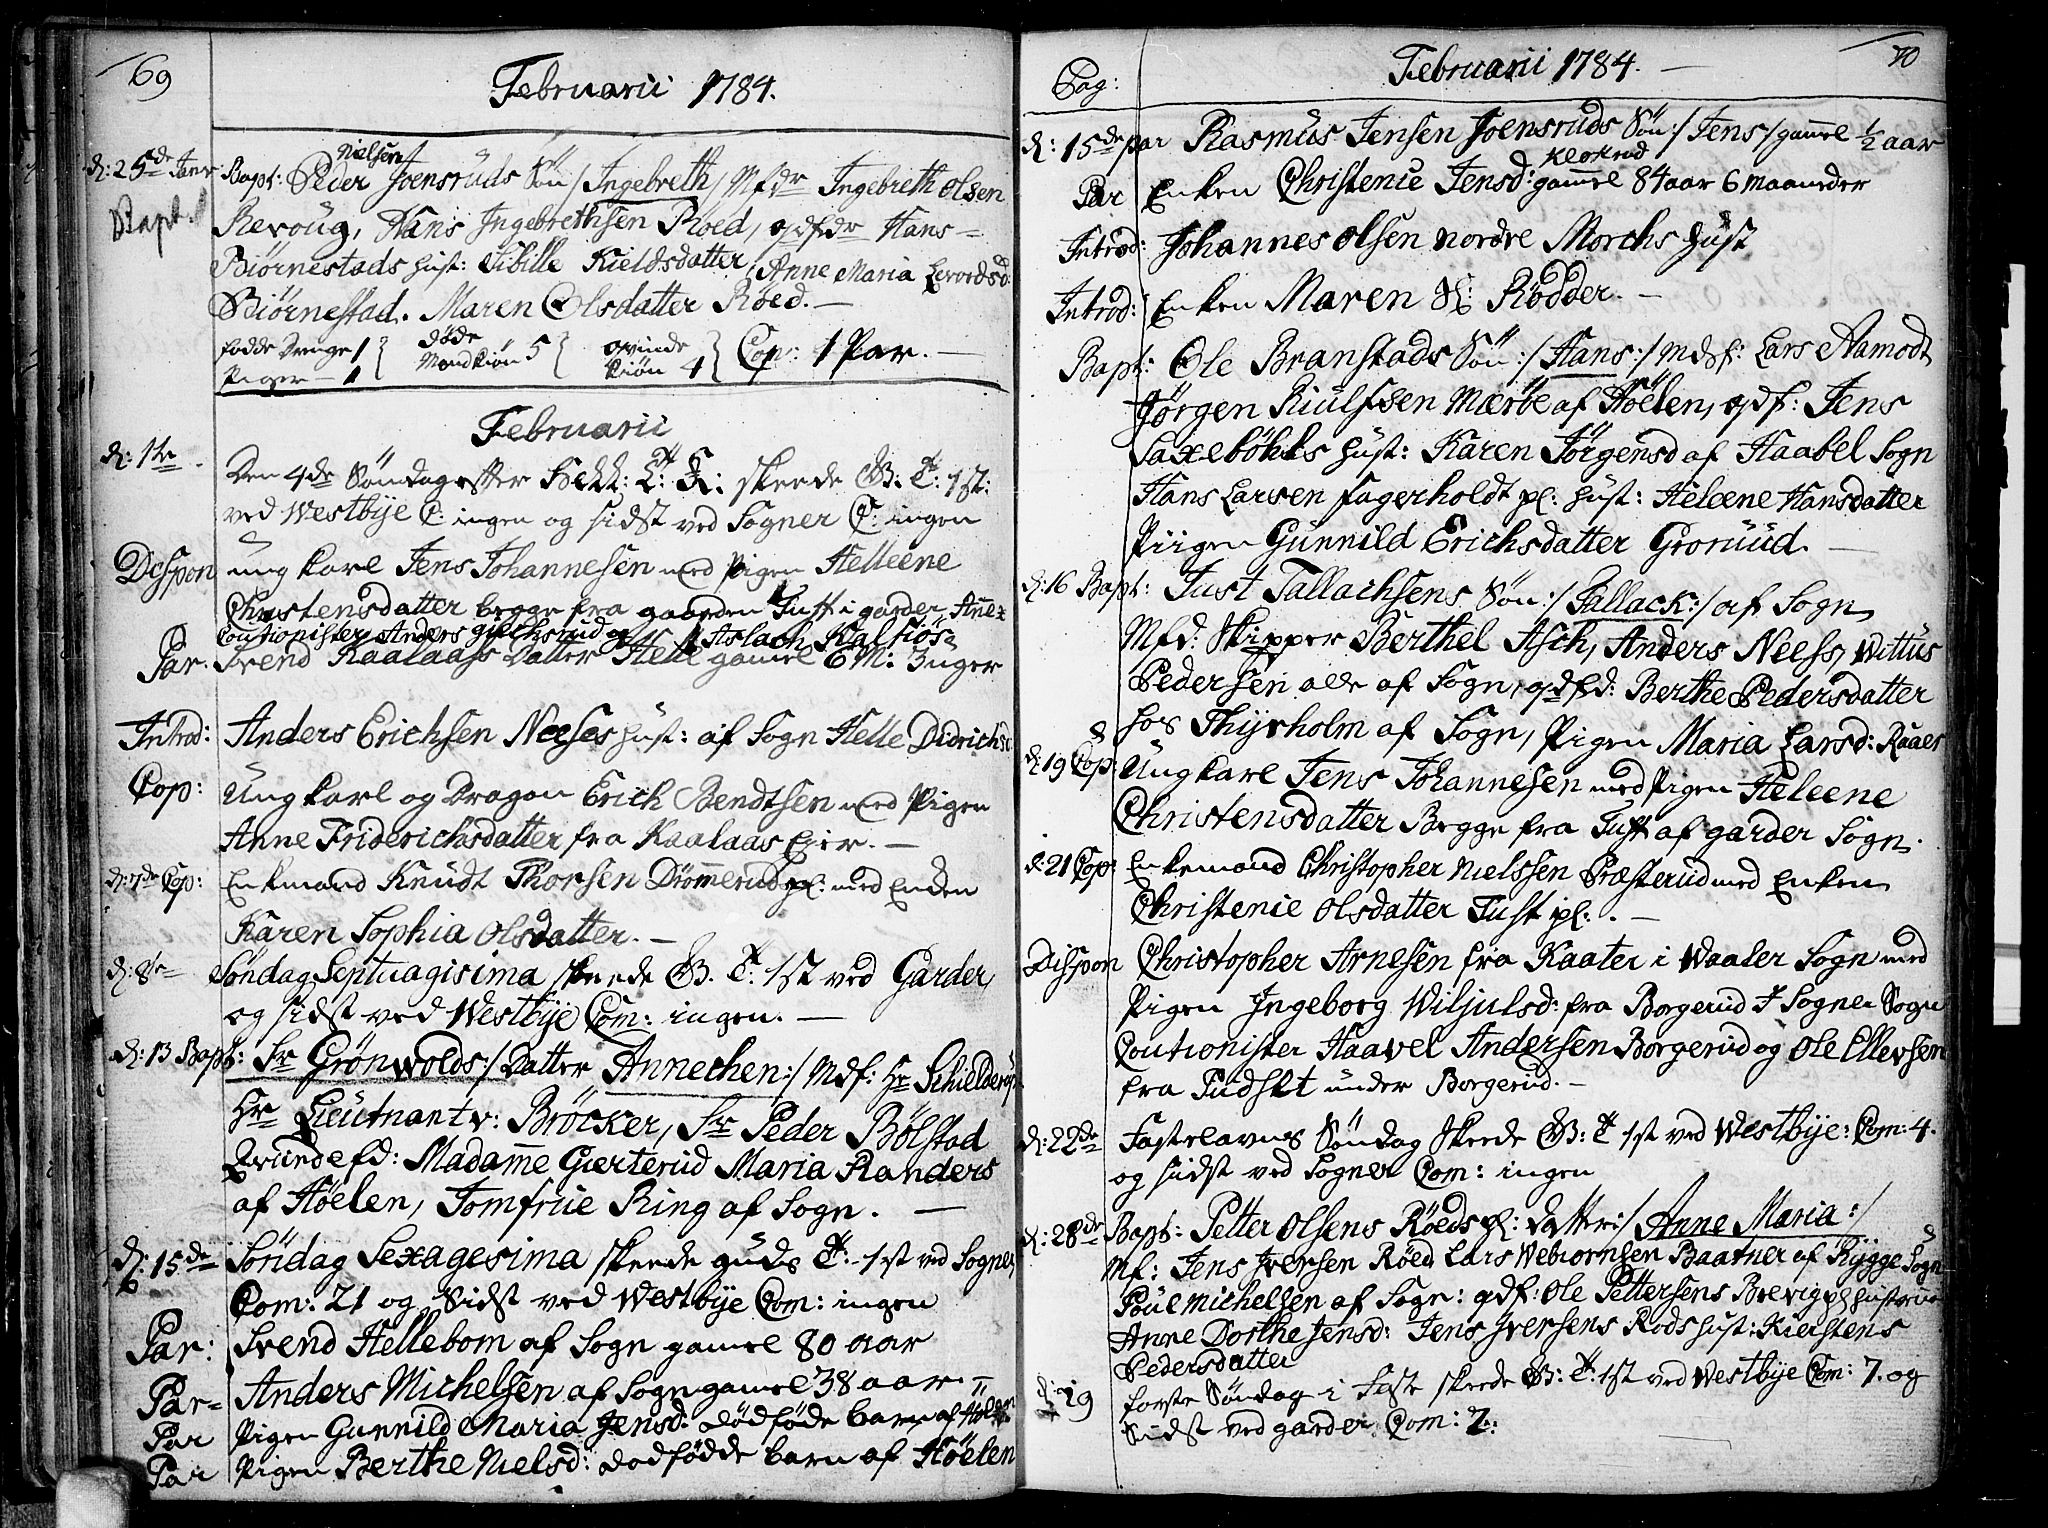 69
Februarii 1784.
d: 25de Janr Bapt: Peder Nielsen Joensruds Søn /Ingebreth/ Mfdr Ingebreth Olsen
Bapt.
Revoug, Hans Ingebrethsen Roed, qvdfdr Hans
Biørnestads Hust: Sibille Kieldsdatter, Anne Maria
Biørnestad. Maren Olsdatter Röed. —
fødde Drenge 1 } døde Mandkiøn 5 } qvinde kiøn 4 } Cop: 1 Par. —
Piger — 1
Februarii
d: 1te Den 4de Søndag efter Hell: 3 K: skeede G: T: 1st:
ved Westbye C: ingen og sidst ved Sogner C: ingen
Dispon ung karl Jens Johannesen med Pigen Helleene
Christensdatter begge fra gaarden Tuft i garder Anex
Coutionister Anders og Aslach Kalsiös
Par. Svend Kaalaass Datter Helle gamel 6 M: 3 uger
Introd: Anders Erichsen Neeses Hust: af Sogn Helle Didrichsd
Cop: Ung karl og Dragon Erich Bendtsen med Pigen
Anne Friderichsdatter fra Kaalaas Eier. —
d: 7de Cop: Enkmand Knudt Thorsen Drömmerud pl: med Enken
Karen Sophia Olsdatter. —
d: 8de Søndag Septuagisima skeede G. T. 1st ved Garder
og sidst ved Westbye Com: ingen. —
d: 13 Bapt: Sr Grönwolds :/ Datter Annechen :/ Mdf: Hr Schielderup
Hr Lieutnant v: Bröcker, Sr Peder Bölstad
Qvindefd: Madamme Gierterud Maria Randers
af Höelen, Jomfrue Ring af Sogn. —
d: 15de Søndag Sexagesima skeede guds T: 1st ved Sogner
Com: 21 og Sidst ved Westbye Com: ingen
Par: Svend Hellebom af Sogn gamel 80 aar
Par- Anders Michelsen af Sogn gamel 38 aar =
Par Pigen Gunnild Maria Jensd: dødføde barn af Hölen
Par Pigen Berthe Nielsd: dodfødde barn af Höelen
70
Februarii 1784. —
Pag:
d: 15de par Rasmus Jensen Joensruds Søn :/ Jens / gamel 1/2 aar
Par Enken Christenie Jensd: Klokrud gamel 84 aar 6 Maaneder
Introd: Johannes Olsen nordre Morchs Hust
Introd: Enken Maren N: Rödder. —
Bapt: Ole Branstads Søn :/ Hans :/ Mdsf: Lars Aamodt
Jörgen Riulfsen Mærbe af Höelen, qvdf: Jens
Saxebökks Hust: Karen Jörgensd af Haabel Sogn
Hans Larsen Fagerholdt pl: Hust: Heleene Hansdatter
Piigen Gunnild Erichsdatter Groruud. —
d: 16 Bapt: Just Tallachsens Søn :/ Tallack :/ af Sogn
Mfd: Skipper Berthel Asch, Anders Neess, Wittus
Pedersen alle af Sogn, qvdfd: Berthe Pedersdatter
hos Thyrholm af Sogn, Pigen Maria Larsd: Raaer
d: 19 Cop: Ung karl Jens Johannesen med Pigen Heleene
Christensdatter Begge fra Tuft af garder Sogn.
d: 21 Cop: Enkemand Christopher Nielssen Præsterud med Enken
Christenie Olsdatter Tust pl: . —
Dispon Christopher Arnesen fra Kaater i Waaler Sogn med
Pigen Ingeborg Wiljulsd: fra Borgerud I Sogner Sogn
Coutionister Haavel Andersen Borgerud og Ole Ellevsen
fra under Borgerud. —
d: 22de Fastelavns Søndag skeede G: T 1st ved Westbye: Com: 4.
og sidst ved Sogner Com: ingen
d: 28de Bapt: Petter Olsens Röeds pl: datter :/ Anne Maria :/
Mf: Jens Iversen Röed Lars Webiornsen Baatner af Rygge Sogn
Poul Michelsen af Sogn: qdf: Ole Pettersens Brevig pl Hustrue
Anne Dorthe Jensd: Jens Iversens Rods Hust: Kierstens
Pedersdatter
d: 29 forste Søndag i Faste skeede G: T: 1st ved Westbye Com: 7. og
Sidst ved garder Com: 7: